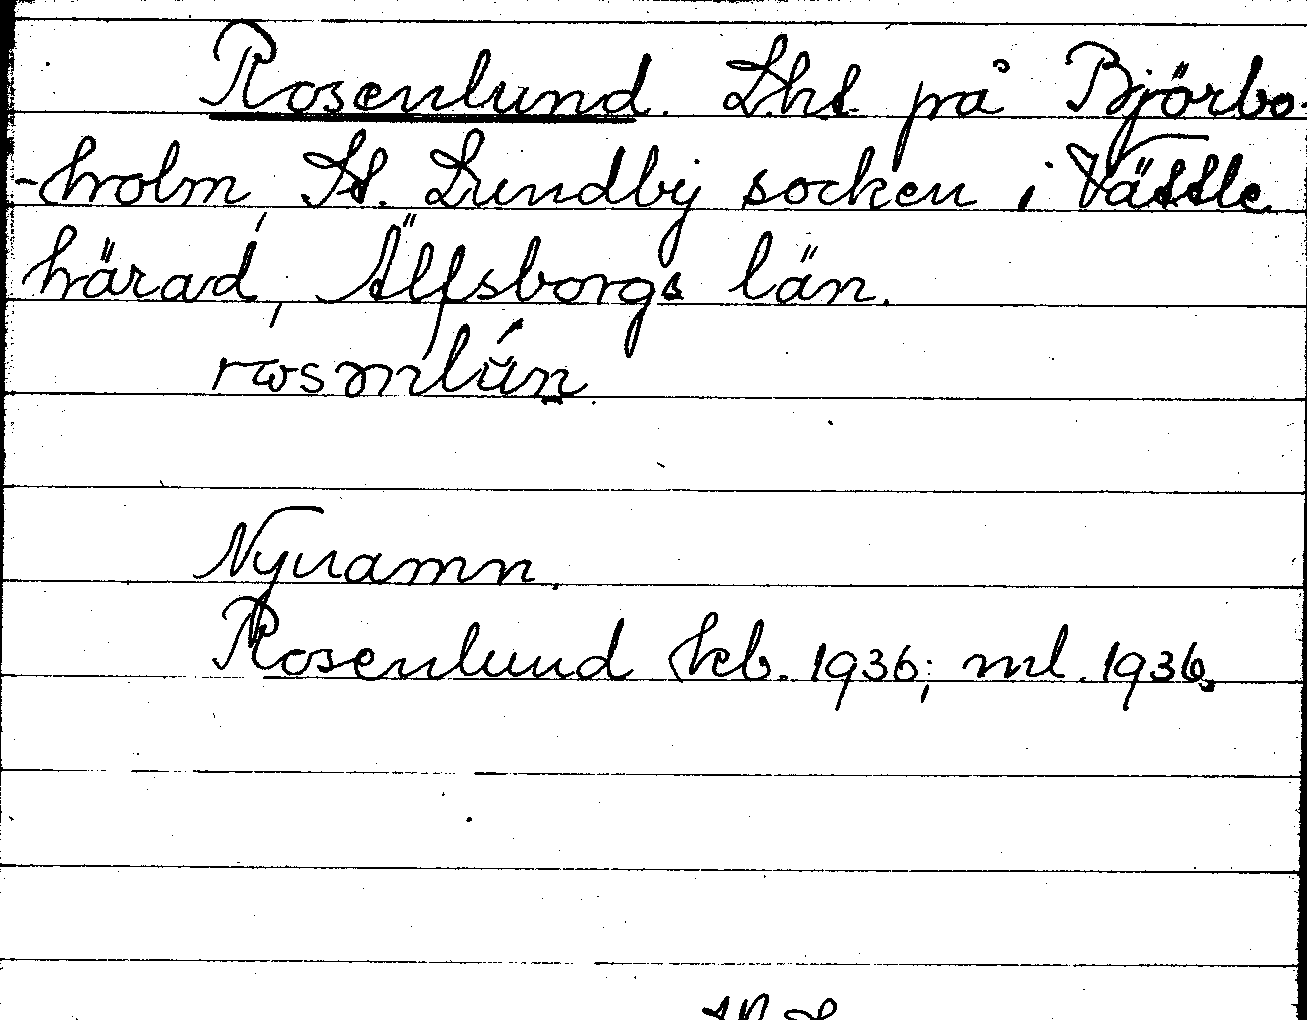 Rosenlund. Lht på Björbo-
-holm, St. Lundby socken i Vättle
härad, Älfsborgs län.
Nynamn.
Rosenlund kb. 1936; ml. 1936.